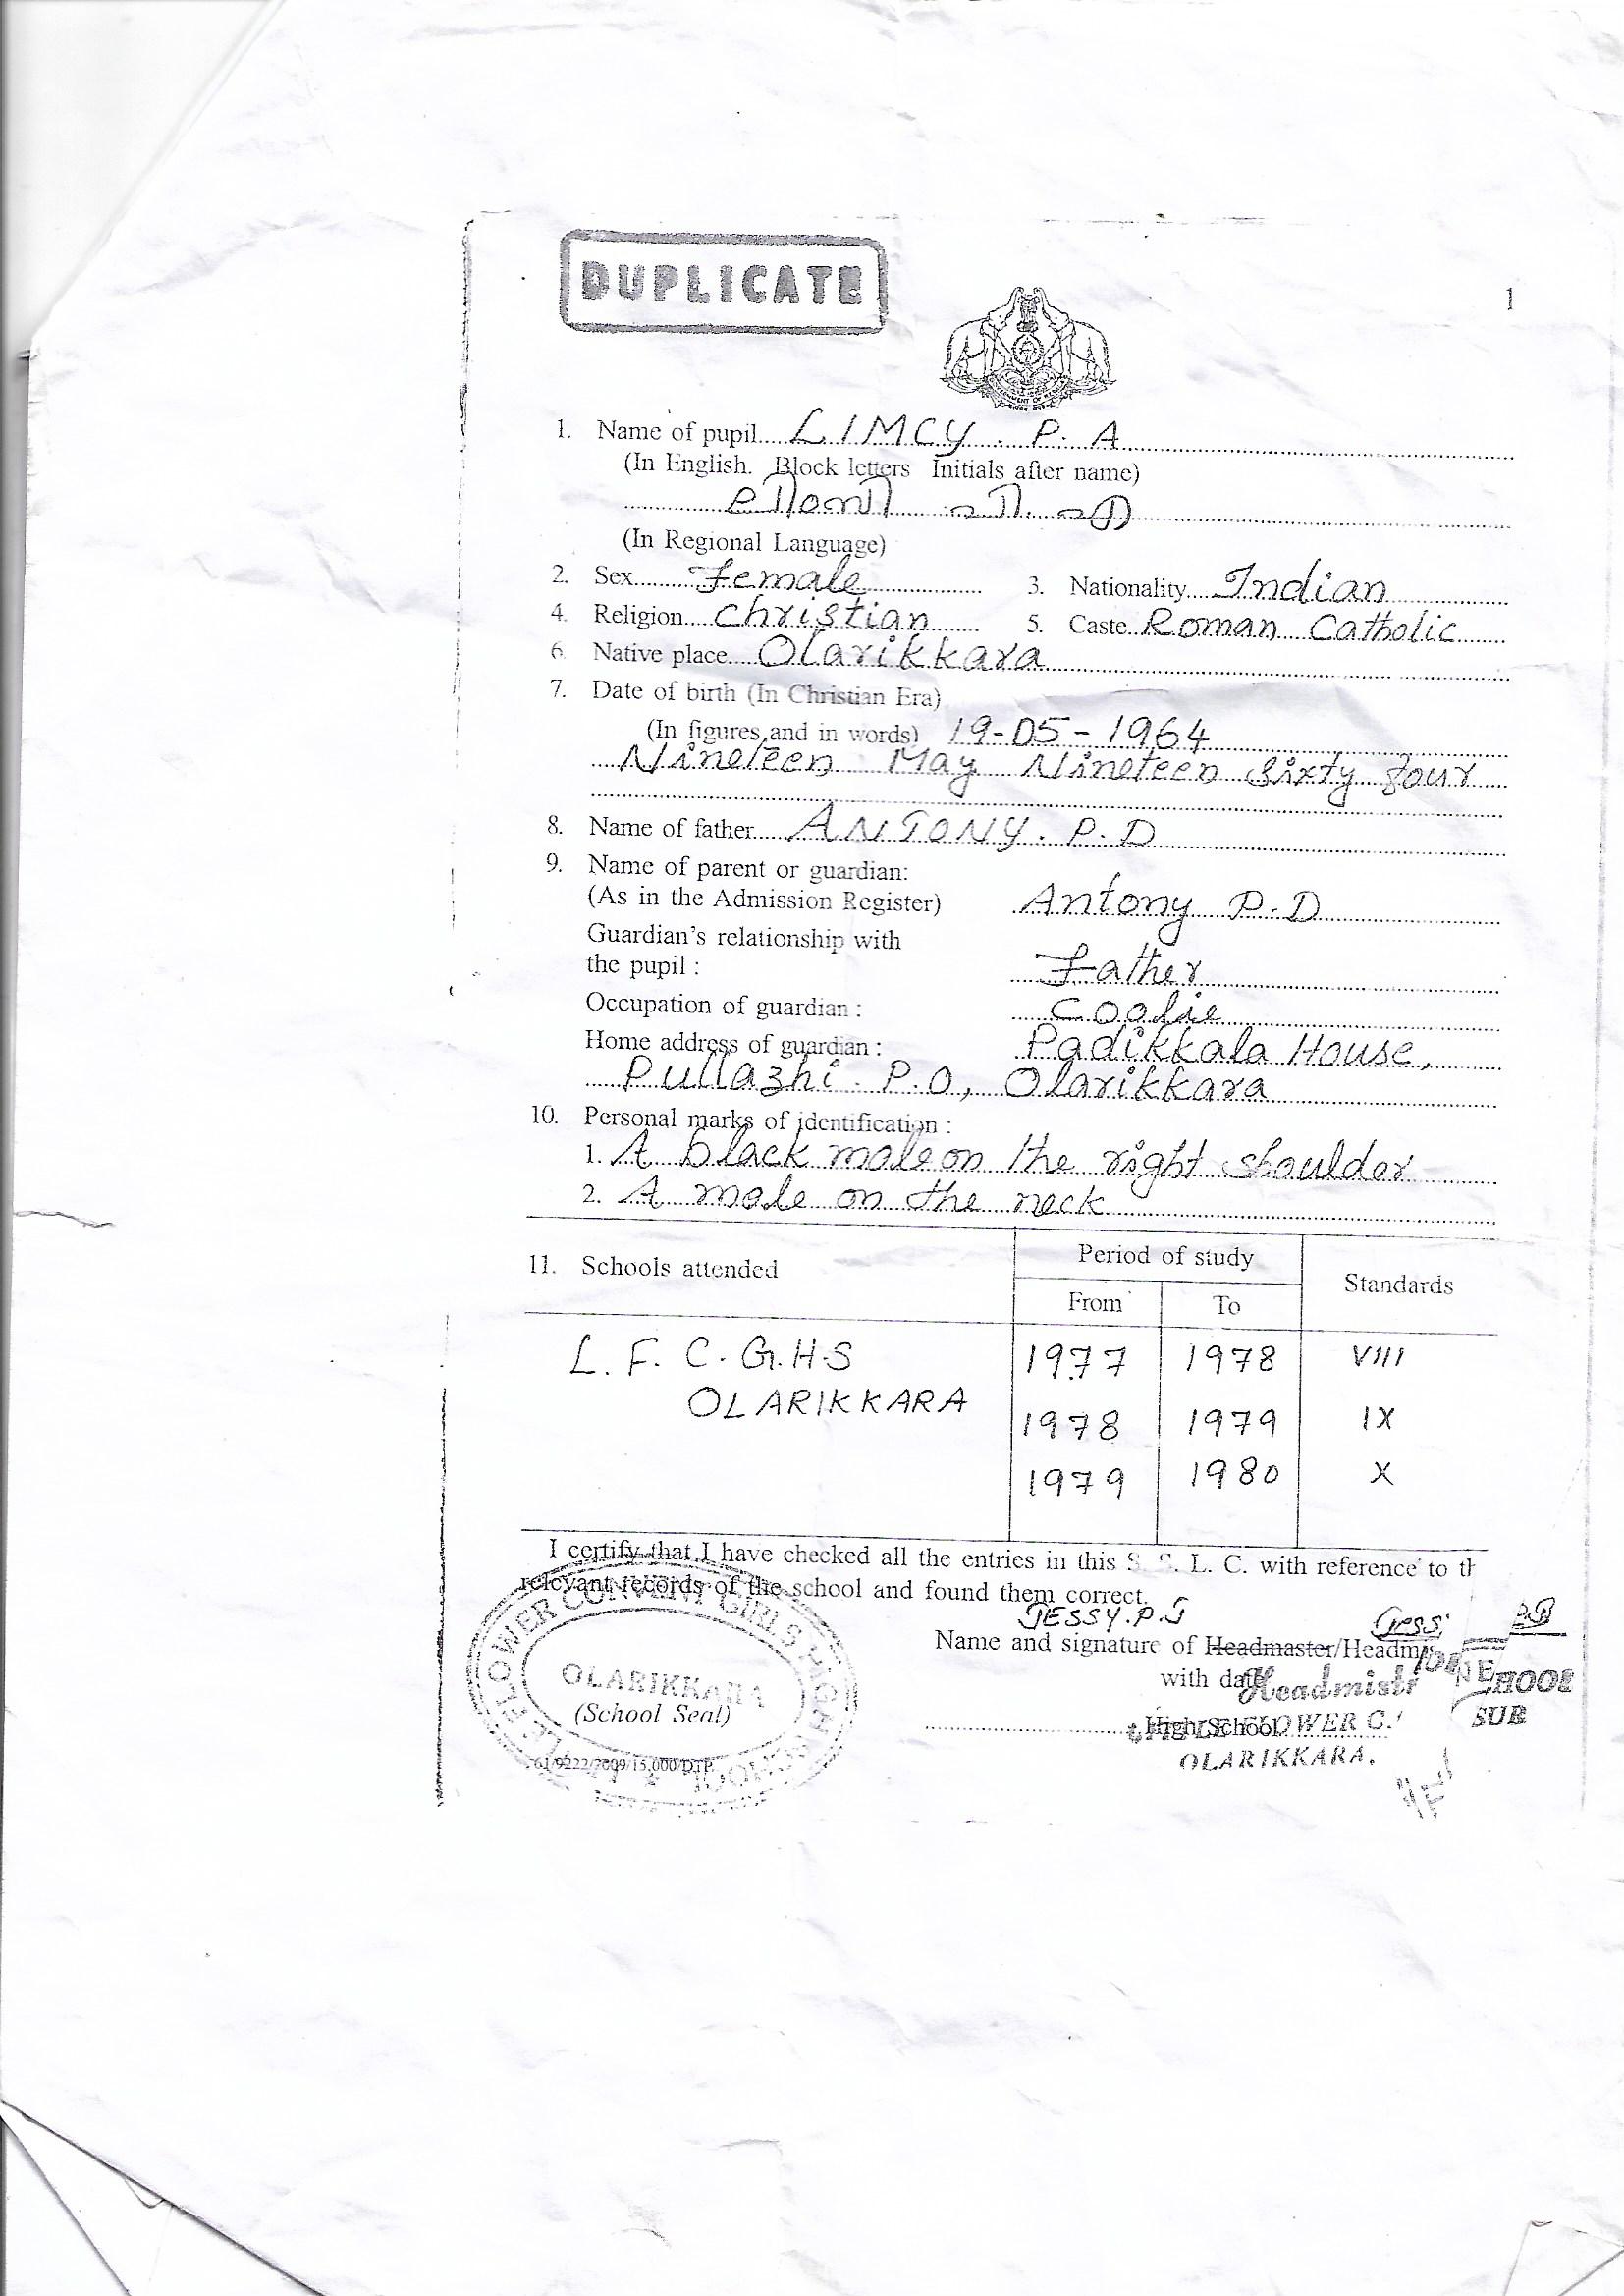 DUPLICATE
1
1. Name of pupil LIMCY. P. A
(In English. Block letters Initials after name)
ലിംസി പി. എ
(In Regional Language)
2. Sex Female 3. Nationality Indian
4. Religion Christian 5. Caste Roman Catholic
6. Native place Olarikkara
7. Date of birth (In Christian Era)
(In figures and in words) 19-05-1964
Nineteen May Nineteen Sixty four
8. Name of father ANTONY. P. D
9. Name of parent or guardian:
(As in the Admission Register) Antony P.D
Guardian's relationship with
the pupil : Father
Occupation of guardian : Coolie
Home address of guardian : Padikkala House,
Pullazhi. P.O, Olarikkara
10. Personal marks of identification :
1. A black mole on the right shoulder
2. A mole on the neck
11. Schools attended Period of study Standards
From To
L. F. C. G.H.S 1977 1978 VIII
OLARIKKARA 1978 1979 IX
1979 1980 X
I certify that I have checked all the entries in this S. S. L. C. with reference to th
relevant records of the school and found them correct.
JESSY. P. J
Name and signature of Headmaster/Headmis
with date Headmistr
High School FLOWER C.
OLARIKKARA.
HOOL
SUB
FLOWER CONVENT GIRLS HIGH
OLARIKKARA
(School Seal)
61/9222/2009/15,000/DTP.